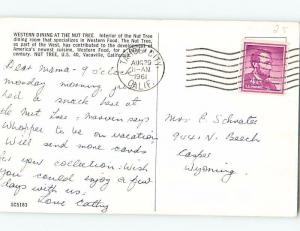 WESTERN DINING AT THE NUT TREE. Interior of the Nut Tree
dining room that specializes in Western Food. The Nut Tree,
as part of the West, has contributed to the development of
America's newest cuisine, Western Food, for
NUT TREE, U.S. 40, Vacaville,
CITY
AUG 29
AM
1961
CALIF.
Dear Mama - 9 o'clock
monday morning
had a snack here at
the Nut Tree. Marven says
Whopper to be on vacation
Will send more cards
for your collection. Wish
you could enjoy a few
days with us.
Love Cathy
SC5183
Mrs P Schwater
944 N. Beech
Casper
Wyoming